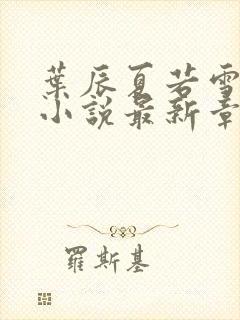 葉辰夏若雪
小說最新章
羅斯基